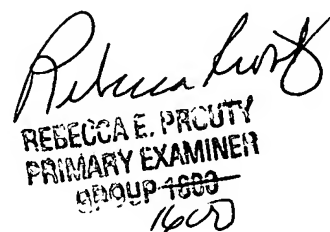 Rebecca Prouty
REBECCA E. PROUTY
PRIMARY EXAMINER
GROUP 1600
1600